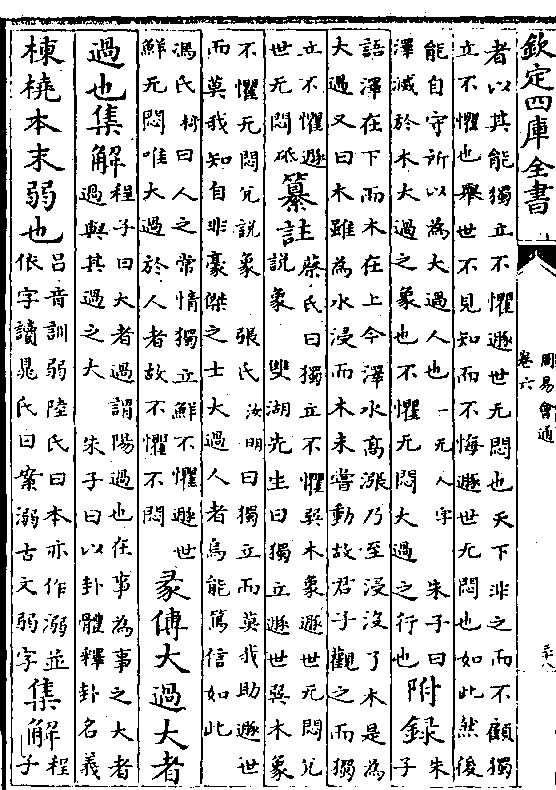 欽定四庫全書
周易會通
卷六
者以其能獨立不懼遯世无悶也天下非之而不顧獨
立不懼也舉世不見知而不悔遯世无悶也如此然後
能自守所以為大過人也 一无人字 朱子曰
澤滅於木大過之象也不懼无悶大過之行也
附録
朱
子
語澤在下而木在上今澤水高漲乃至浸沒了木是為
大過又曰木雖為水浸而木未嘗動故君子觀之而獨
立不懼遯
世无悶砥
纂註
蔡氏曰獨立不懼巽木象遯世无悶兊
說象 雙湖先生曰獨立遯世巽木象
不懼无悶兊說象 張氏汝明曰獨立而莫我助遯世
而莫我知自非豪傑之士大過人者烏能篤信如此
馮氏椅曰人之常情獨立鮮不懼遯世
鮮无悶唯大過於人者故不懼不悶
彖傳大過大者
過也集解
程子曰大者過謂陽過也在事為事之大者
過與其過之大 朱子曰以卦體釋卦名義
棟橈本末弱也
呂音訓弱陸氏曰本亦作溺並
依字讀晁氏曰案溺古文弱字
集解
程
子